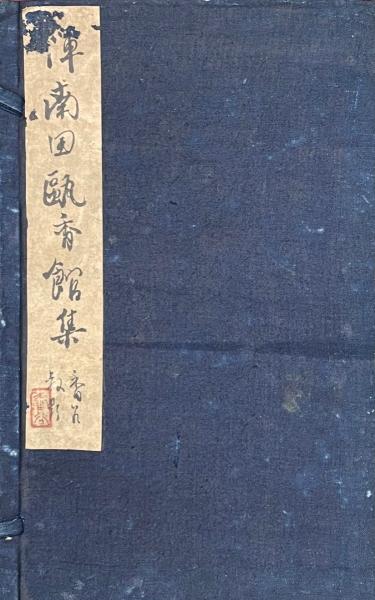 惲南田甌香館集